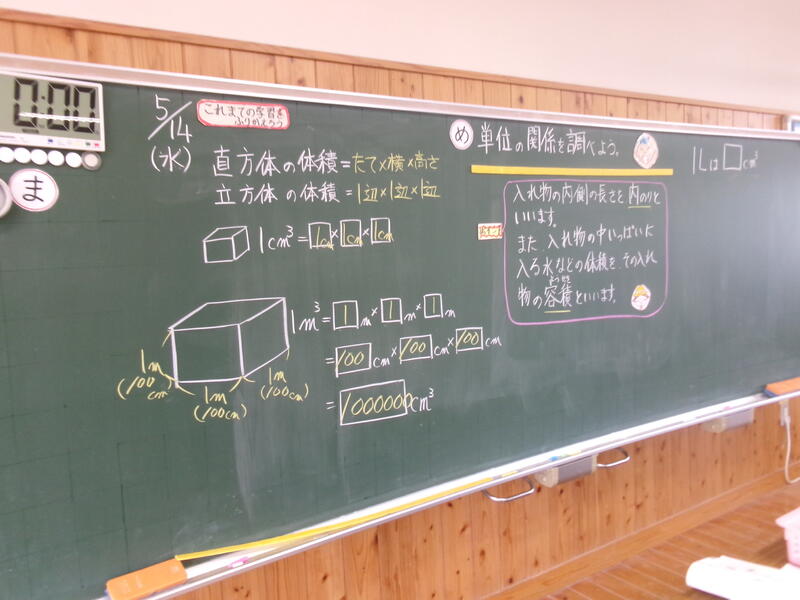 0:00
ま
5/14
(水)
これまでの学習を
ふりかえろう
直方体の体積=たて×横×高さ
立方体の体積=1辺×1辺×1辺
1cm³=1cm×1cm×1cm
1m³=1m×1m×1m
=100cm×100cm×100cm
=1000000cm³
1m
(100cm)
1m
(100cm)
1m
(100cm)
め 単位の関係を調べよう。
入れ物の内側の長さを内のりと
いいます。
また、入れ物の中いっぱいに
入る水などの体積を、その入れ
物の容積といいます。
ようせき
1Lは□cm³